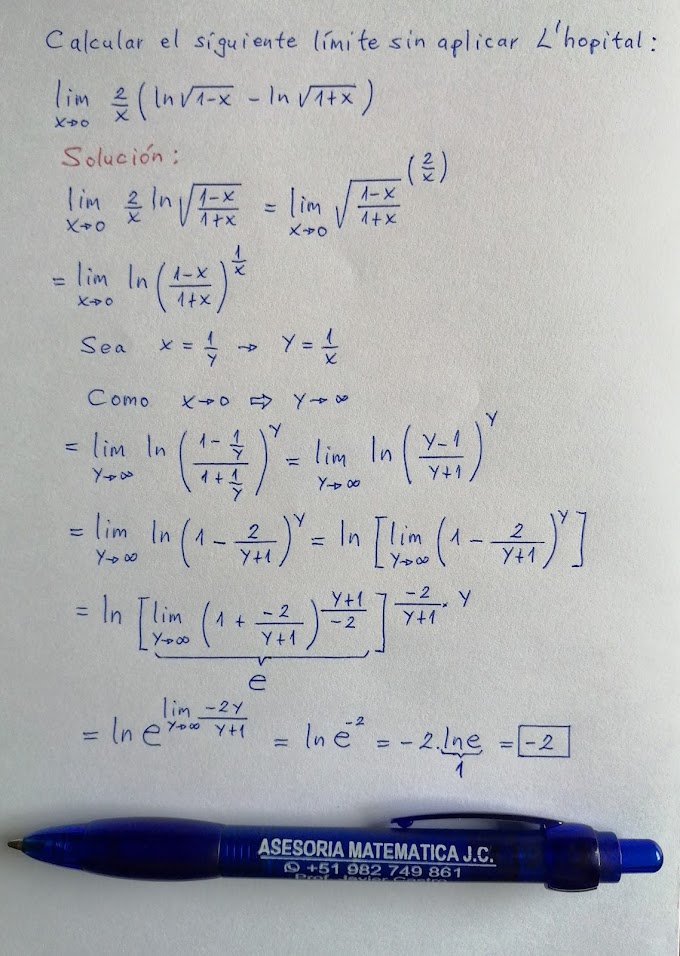 Calcular el siguiente límite sin aplicar L'hopital:
lim x→0 2/x (ln√(1-x) - ln√(1+x))
Solución:
lim x→0 2/x ln√((1-x)/(1+x)) = lim x→0 √((1-x)/(1+x))^(2/x)
= lim x→0 ln((1-x)/(1+x))^(1/x)
Sea x = 1/y → y = 1/x
Como x→0 ⇨ y→∞
= lim y→∞ ln((1-1/y)/(1+1/y))^y = lim y→∞ ln((y-1)/(y+1))^y
= lim y→∞ ln(1 - 2/(y+1))^y = ln[lim y→∞ (1 - 2/(y+1))^y]
= ln[lim y→∞ (1 + -2/(y+1))^((y+1)/-2)]^(-2/(y+1) · y)
e
= ln e^(lim y→∞ -2y/(y+1)) = ln e^-2 = -2.ln e = -2
1
ASESORIA MATEMATICA J.C.
+51 982 749 861